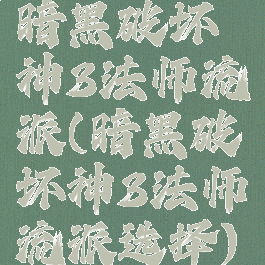 暗黑破坏
神3法师流
派(暗黑破
坏神3法师
流派选择)